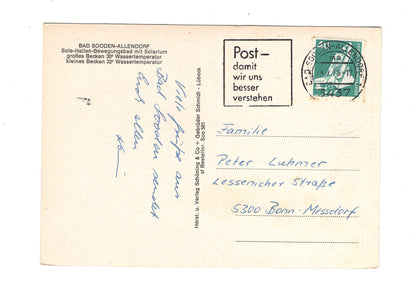 BAD SOODEN-ALLENDORF
Sole-Hallen-Bewegungsbad mit Solarium
großes Becken 30° Wassertemperatur
kleines Becken 32° Wassertemperatur
Viele Grüße aus
Bad Sooden sendet
euch allen
Herst. u. Verlag Schöning & Co + Gebrüder Schmidt - Lübeck
Post-
damit
wir uns
besser
verstehen
BAD SOODEN-ALLENDORF
3437
Familie
Peter Luhmer
Lessenicher Straße
5300 Bonn-Messdorf